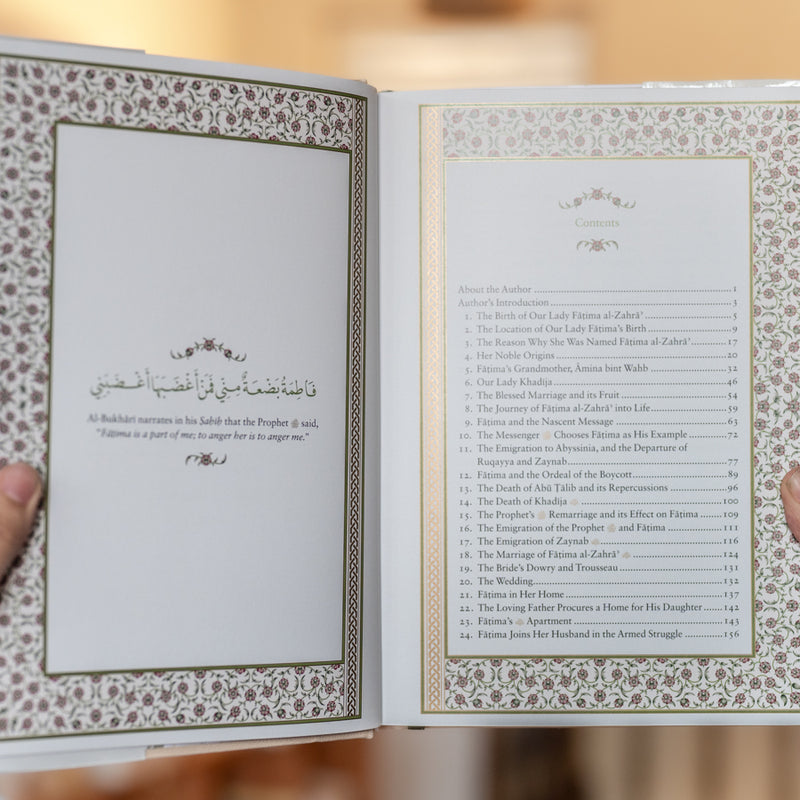 فَاطِمَةُ بَضْعَةٌ مِنِّي فَمَنْ أَغْضَبَهَا أَغْضَبَنِي
Al-Bukhārī narrates in his Ṣaḥīḥ that the Prophet ﷺ said,
“Fāṭima is a part of me; to anger her is to anger me.”
Contents
About the Author 1
Author’s Introduction 3
1. The Birth of Our Lady Fāṭima al-Zahrāʾ 5
2. The Location of Our Lady Fāṭima’s Birth 9
3. The Reason Why She Was Named Fāṭima al-Zahrāʾ 17
4. Her Noble Origins 20
5. Fāṭima’s Grandmother, Āmina bint Wahb 32
6. Our Lady Khadīja 46
7. The Blessed Marriage and its Fruit 54
8. The Journey of Fāṭima al-Zahrāʾ into Life 59
9. Fāṭima and the Nascent Message 63
10. The Messenger ﷺ Chooses Fāṭima as His Example 72
11. The Emigration to Abyssinia, and the Departure of
Ruqayya and Zaynab 77
12. Fāṭima and the Ordeal of the Boycott 89
13. The Death of Abū Ṭālib and its Repercussions 96
14. The Death of Khadīja 100
15. The Prophet’s ﷺ Remarriage and its Effect on Fāṭima 109
16. The Emigration of the Prophet ﷺ and Fāṭima 111
17. The Emigration of Zaynab 116
18. The Marriage of Fāṭima al-Zahrāʾ 124
19. The Bride’s Dowry and Trousseau 131
20. The Wedding 132
21. Fāṭima in Her Home 137
22. The Loving Father Procures a Home for His Daughter 142
23. Fāṭima’s Apartment 143
24. Fāṭima Joins Her Husband in the Armed Struggle 156